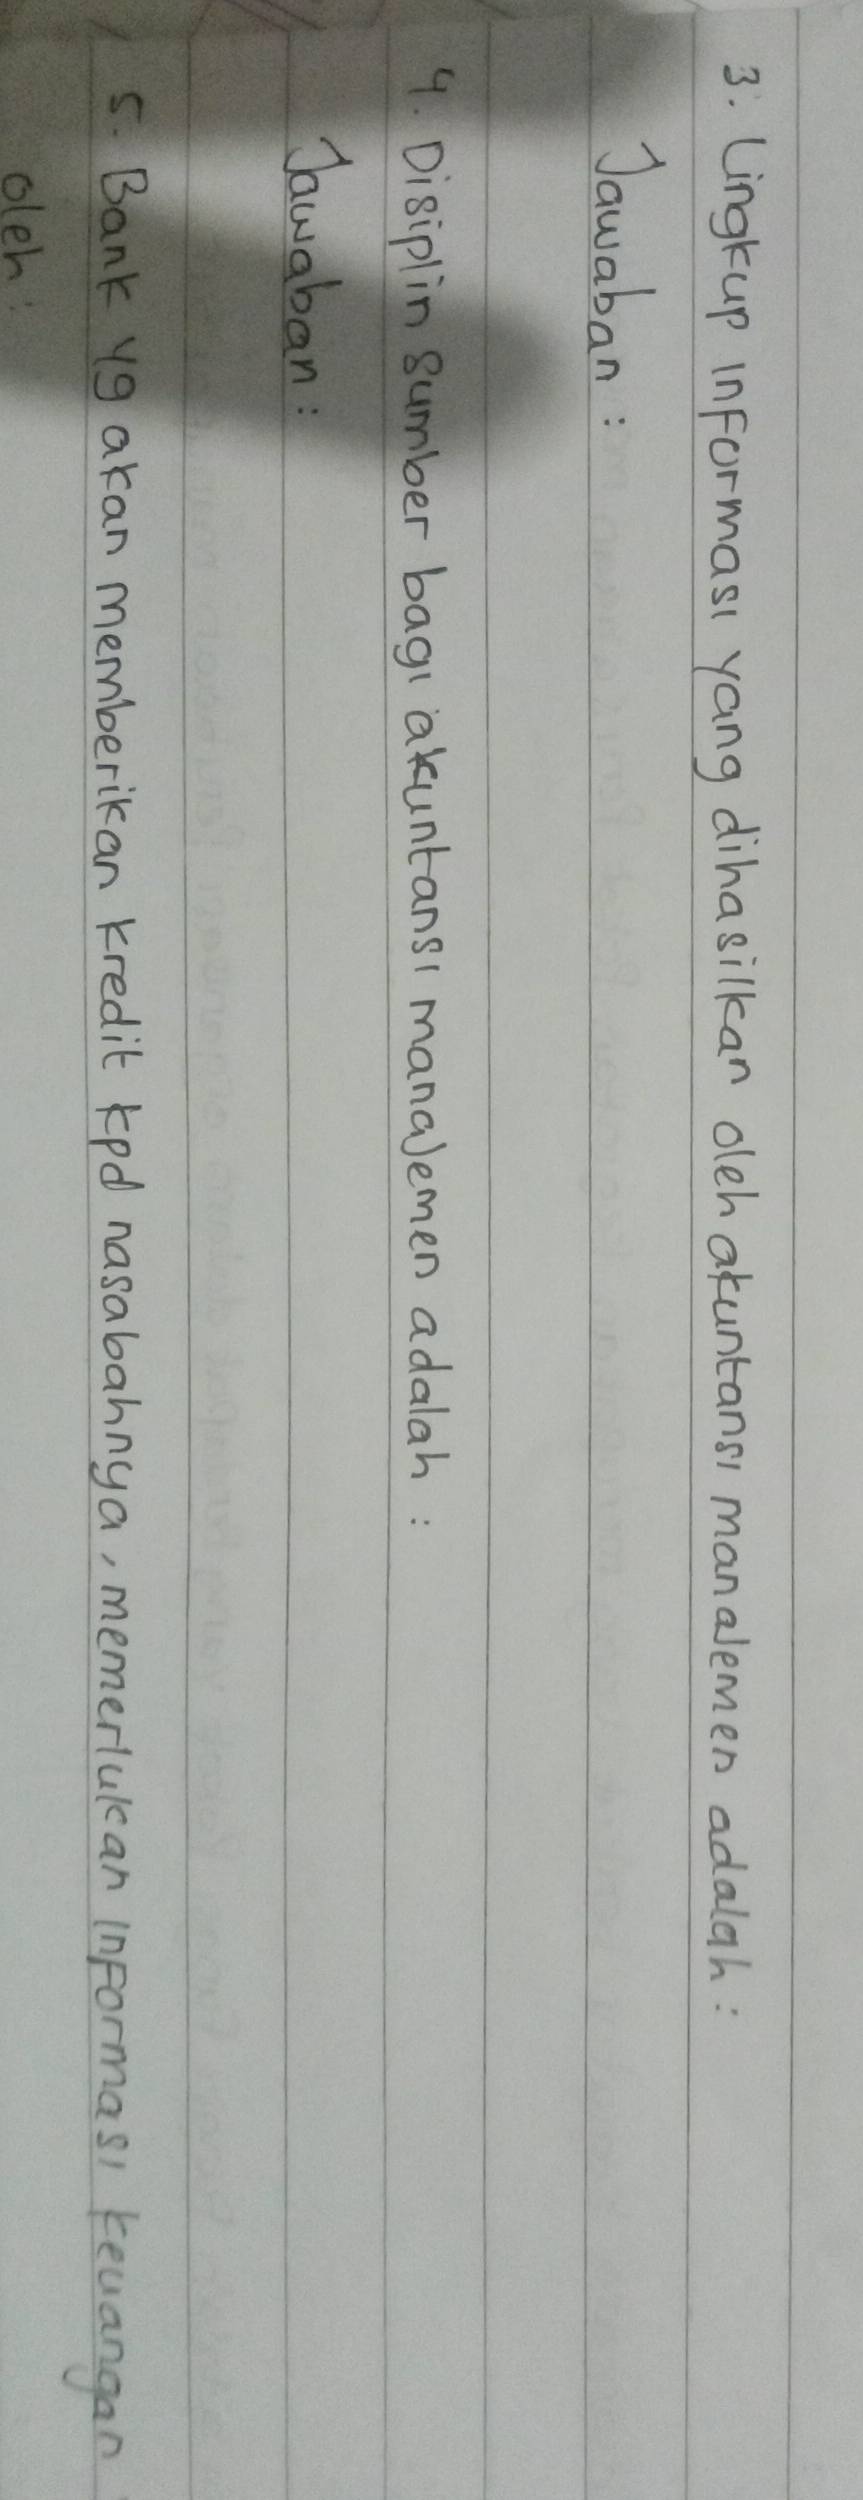 3. Lingkup informasi yang dihasilkan oleh akuntansi manajemen adalah :
Jawaban :
4. Disiplin sumber bagi akuntansi manajemen adalah :
Jawaban :
5. Bank yg akan memberikan kredit kpd nasabahnya, memerlukan informasi keuangan
oleh :